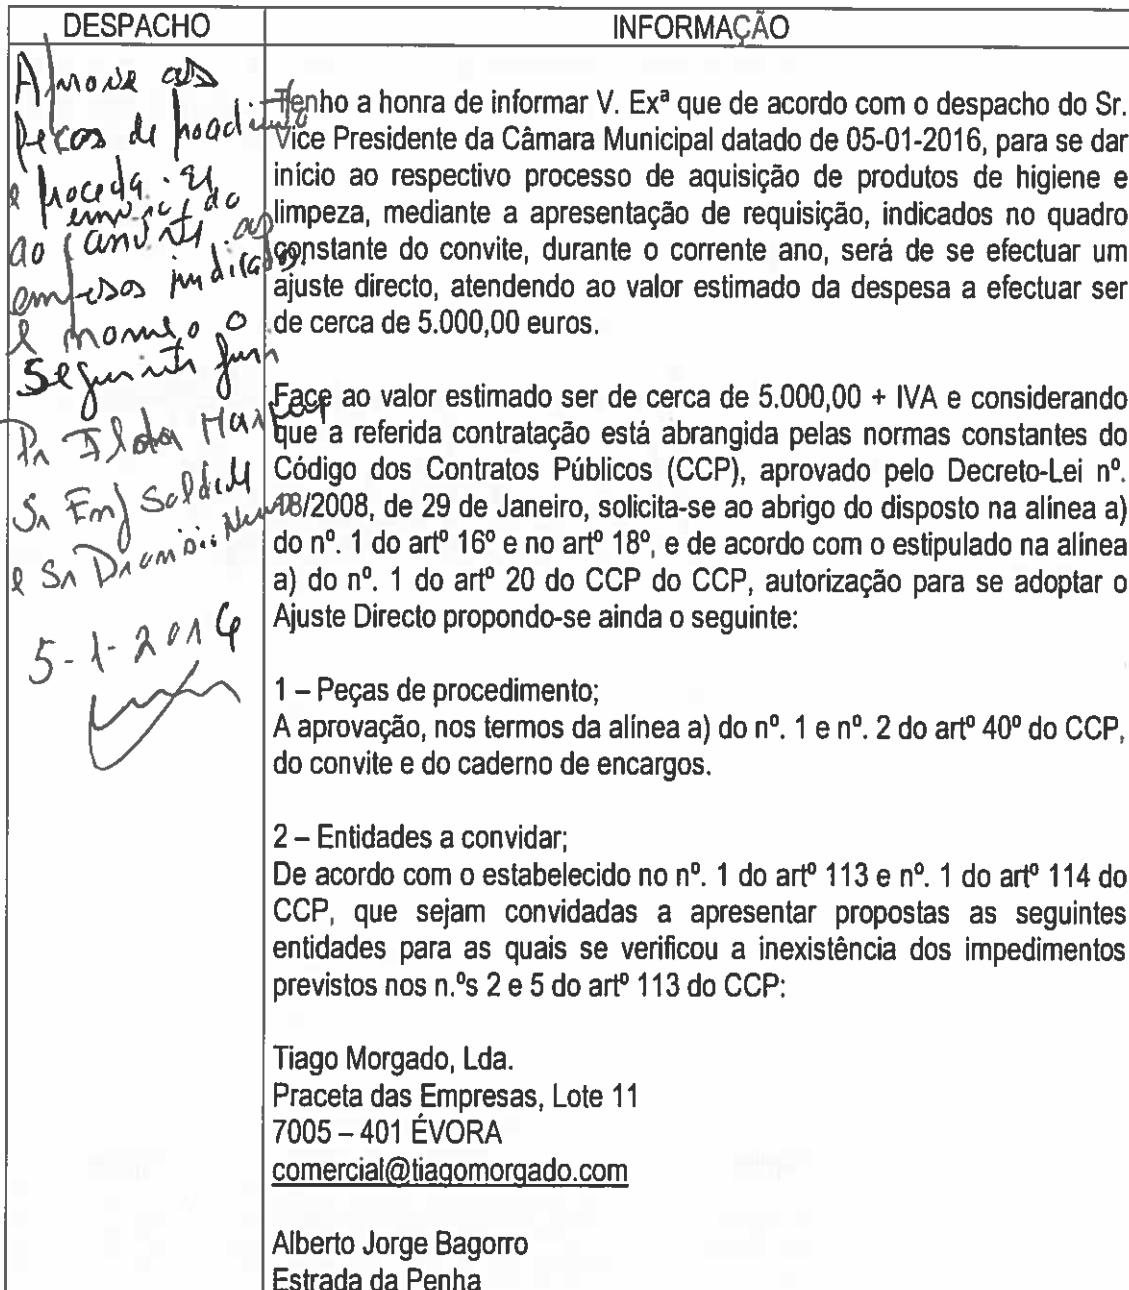 DESPACHO
INFORMAÇÃO
Aprove as
peças de
e proceda-se
ao convite as
empresas indicadas
e nomeio o
Seguinte juri
Sr Eng
e Sr
5-1-2016
Tenho a honra de informar V. Exª que de acordo com o despacho do Sr.
Vice Presidente da Câmara Municipal datado de 05-01-2016, para se dar
início ao respectivo processo de aquisição de produtos de higiene e
limpeza, mediante a apresentação de requisição, indicados no quadro
constante do convite, durante o corrente ano, será de se efectuar um
ajuste directo, atendendo ao valor estimado da despesa a efectuar ser
de cerca de 5.000,00 euros.
Face ao valor estimado ser de cerca de 5.000,00 + IVA e considerando
que a referida contratação está abrangida pelas normas constantes do
Código dos Contratos Públicos (CCP), aprovado pelo Decreto-Lei nº.
18/2008, de 29 de Janeiro, solicita-se ao abrigo do disposto na alínea a)
do nº. 1 do artº 16º e no artº 18º, e de acordo com o estipulado na alínea
a) do nº. 1 do artº 20 do CCP do CCP, autorização para se adoptar o
Ajuste Directo propondo-se ainda o seguinte:
1 – Peças de procedimento;
A aprovação, nos termos da alínea a) do nº. 1 e nº. 2 do artº 40º do CCP,
do convite e do caderno de encargos.
2 – Entidades a convidar;
De acordo com o estabelecido no nº. 1 do artº 113 e nº. 1 do artº 114 do
CCP, que sejam convidadas a apresentar propostas as seguintes
entidades para as quais se verificou a inexistência dos impedimentos
previstos nos n.ºs 2 e 5 do artº 113 do CCP:
Tiago Morgado, Lda.
Praceta das Empresas, Lote 11
7005 – 401 ÉVORA
comercial@tiagomorgado.com
Alberto Jorge Bagorro
Estrada da Penha